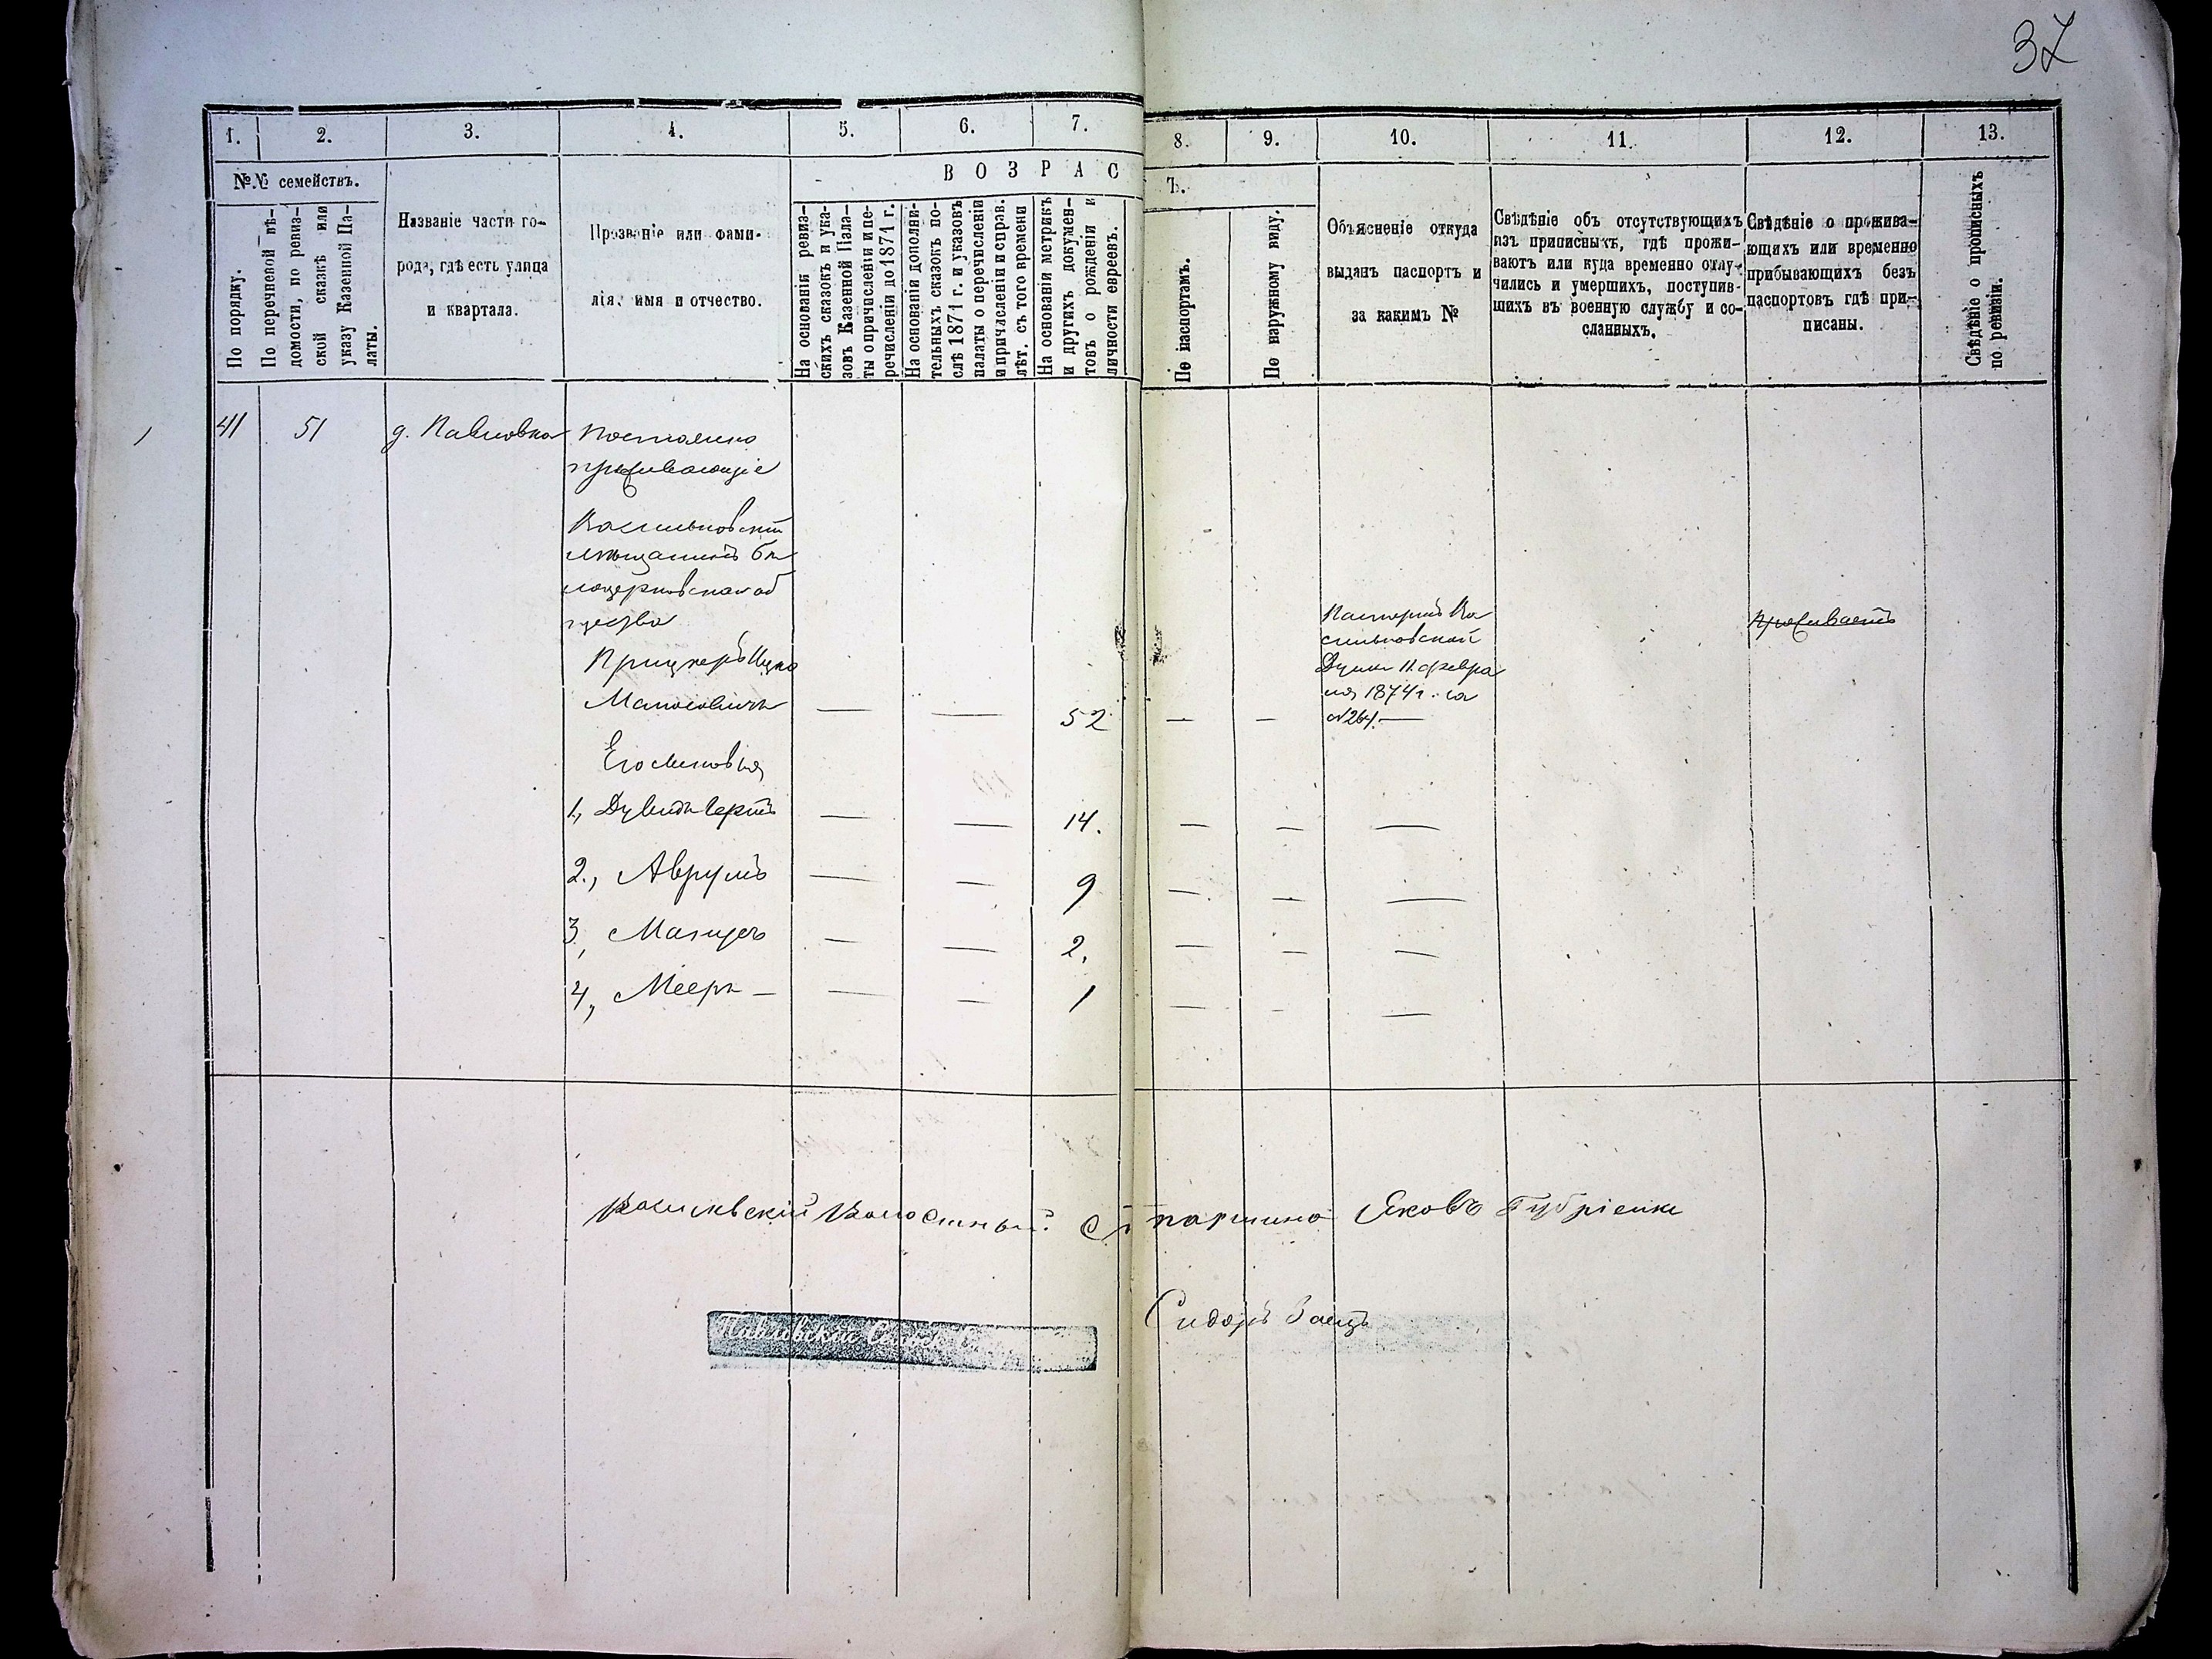 37
1. 2. 3. 4. 5. 6. 7. 8. 9. 10. 11. 12. 13.
№№ семействъ.
По порядку.
По перечневой вѣ-
домости, по ревиз-
ской сказкѣ или
указу Казенной Па-
латы.
Названіе части го-
рода, гдѣ есть улица
и квартала.
Прозваніе или фами-
лія, имя и отчество.
ВОЗРАС
Ъ.
На основаніи ревиз-
скихъ сказокъ и ука-
зовъ Казенной Пала-
ты о причисленіи и пе-
речисленіи до 1871 г.
На основаніи дополни-
тельныхъ сказокъ по-
слѣ 1871 г. и указовъ
палаты о перечисленіи
и причисленіи и справ.
лѣт. съ того времени
На основаніи метрикъ
и другихъ докумен-
товъ о рожденіи и
личности евреевъ.
По паспортамъ.
По наружному виду.
Объясненіе откуда
выданъ паспортъ и
за какимъ №
Свѣдѣніе объ отсутствующихъ
изъ приписныхъ, гдѣ прожи-
ваютъ или куда временно отлу-
чились и умершихъ, поступив-
шихъ въ военную службу и со-
сланныхъ.
Свѣдѣніе о прожива-
ющихъ или временно
прибывающихъ безъ
паспортовъ гдѣ при-
писаны.
Свѣдѣніе о прописныхъ
по ревизіи.
41 51 д. Павловка Постоянно
проживающіе
Васильковскій
мѣщанинъ Бѣ
лоцерковскаго об
щества
Прицкеръ Ицко
Маносовичъ — — 52 — —
Паспортъ Ва
сильковской
Думы 11 февра
ля 1874 г. за
№264 —
проживаетъ
Его сыновья
1, Дувидъ Берко — — 14. — — —
2., Аврумъ — — 9 — — —
3, Манусъ — — 2. — — —
4, Мееръ — — — 1 — — —
Волостный Старшина Яковъ
Павловскій
Сидоръ Заецъ